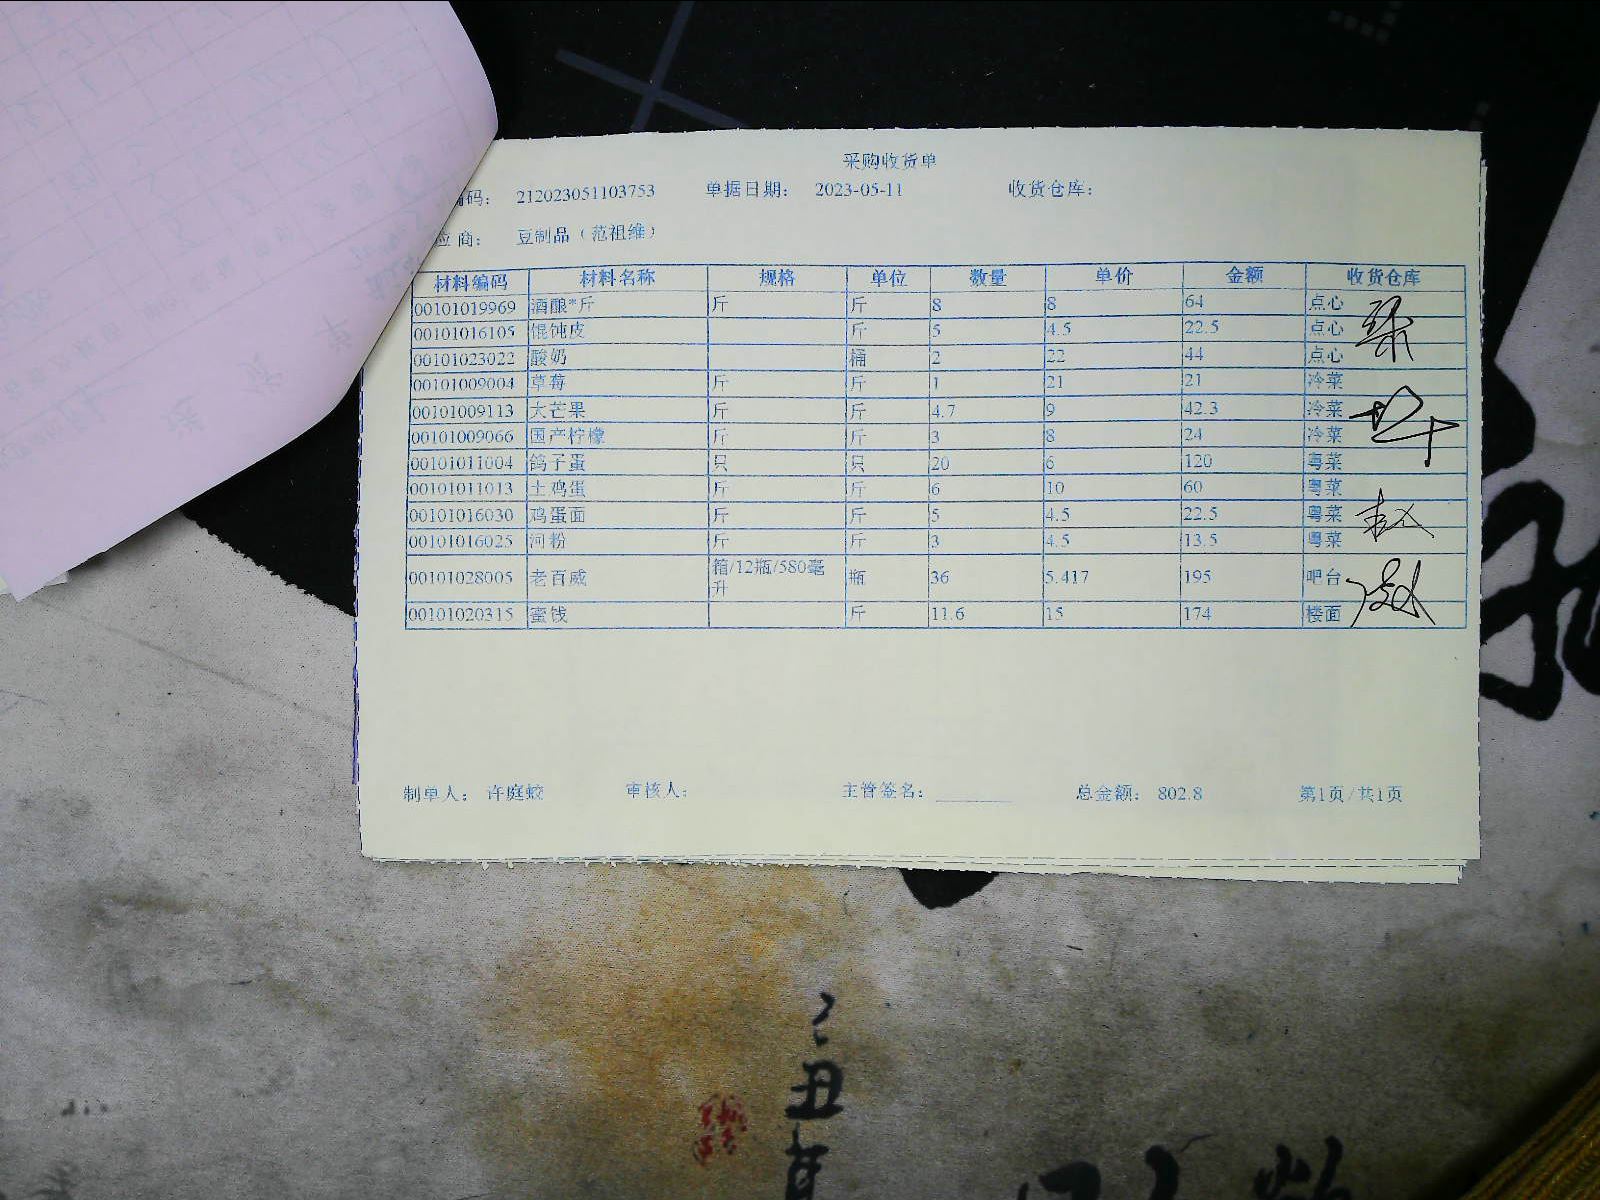 采购收货单
编码： 212023051103753 单据日期： 2023-05-11 收货仓库：
应 商： 豆制品（范祖维）
材料编码 材料名称 规格 单位 数量 单价 金额 收货仓库
00101019969 酒酿*斤 斤 斤 8 8 64 点心
00101016105 馄饨皮 斤 5 4.5 22.5 点心
00101023022 酸奶 桶 2 22 44 点心
00101009004 草莓 斤 斤 1 21 21 冷菜
00101009113 大芒果 斤 斤 4.7 9 42.3 冷菜
00101009066 国产柠檬 斤 斤 3 8 24 冷菜
00101011004 鸽子蛋 只 只 20 6 120 粤菜
00101011013 土鸡蛋 斤 斤 6 10 60 粤菜
00101016030 鸡蛋面 斤 斤 5 4.5 22.5 粤菜
00101016025 河粉 斤 斤 3 4.5 13.5 粤菜
00101028005 老百威 箱/12瓶/580毫升 瓶 36 5.417 195 吧台
00101020315 蜜饯 斤 11.6 15 174 楼面
制单人： 许庭蛟 审核人： 主管签名： 总金额： 802.8 第1页/共1页
丑